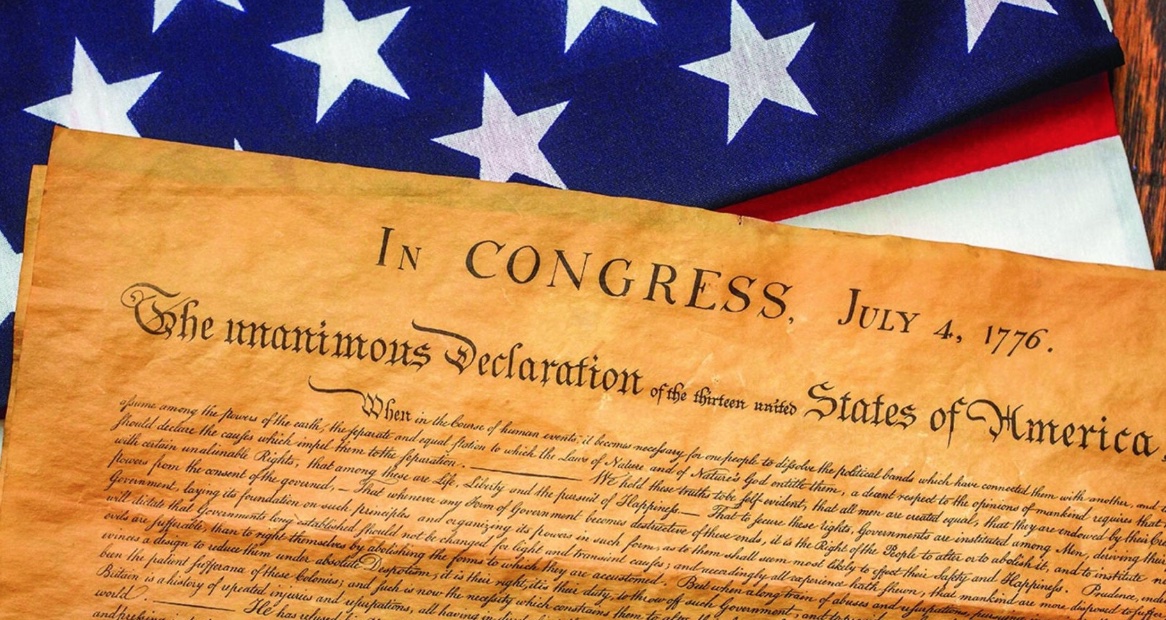 In CONGRESS, July 4, 1776.
The unanimous Declaration of the thirteen united States of America.
When in the Course of human events, it becomes necessary for one people to dissolve the political bands which have connected them with another, and
assume among the powers of the earth, the separate and equal station to which the Laws of Nature and of Nature's God entitle them, a decent respect to the opinions of mankind requires that
should declare the causes which impel them to the separation. We hold these truths to be self-evident, that all men are created equal, that they are endowed by their
with certain unalienable Rights, that among these are Life, Liberty and the pursuit of Happiness.— That to secure these rights, Governments are instituted among Men, deriving
powers from the consent of the governed, — That whenever any Form of Government becomes destructive of these ends, it is the Right of the People to alter or to abolish it, and to institute
Government, laying its foundation on such principles and organizing its powers in such form, as to them shall seem most likely to effect their Safety and Happiness. Prudence,
will dictate that Governments long established should not be changed for light and transient causes; and accordingly all experience hath shewn, that mankind are more disposed to suffer
evils are sufferable, than to right themselves by abolishing the forms to which they are accustomed. But when a long train of abuses and usurpations,
evinces a design to reduce them under absolute Despotism, it is their right, it is their duty, to throw off such Government,
been the patient sufferance of these Colonies; and such is now the necessity which constrains them to alter
Britain is a history of repeated injuries and usurpations, all having in
world. He has refused
and pressing